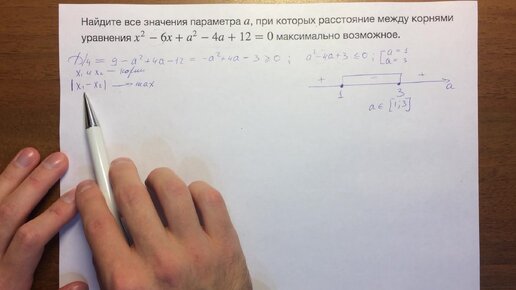 Найдите все значения параметра a, при которых расстояние между корнями
уравнения x² − 6x + a² − 4a + 12 = 0 максимально возможное.
D/4 = 9 − a² + 4a − 12 = −a² + 4a − 3 ≥ 0 ; a² − 4a + 3 ≤ 0 ; [ a = 1
a = 3
x₁ и x₂ — корни
|x₁ − x₂| → max
+ − +
1 3 a
a ∈ [1, 3]